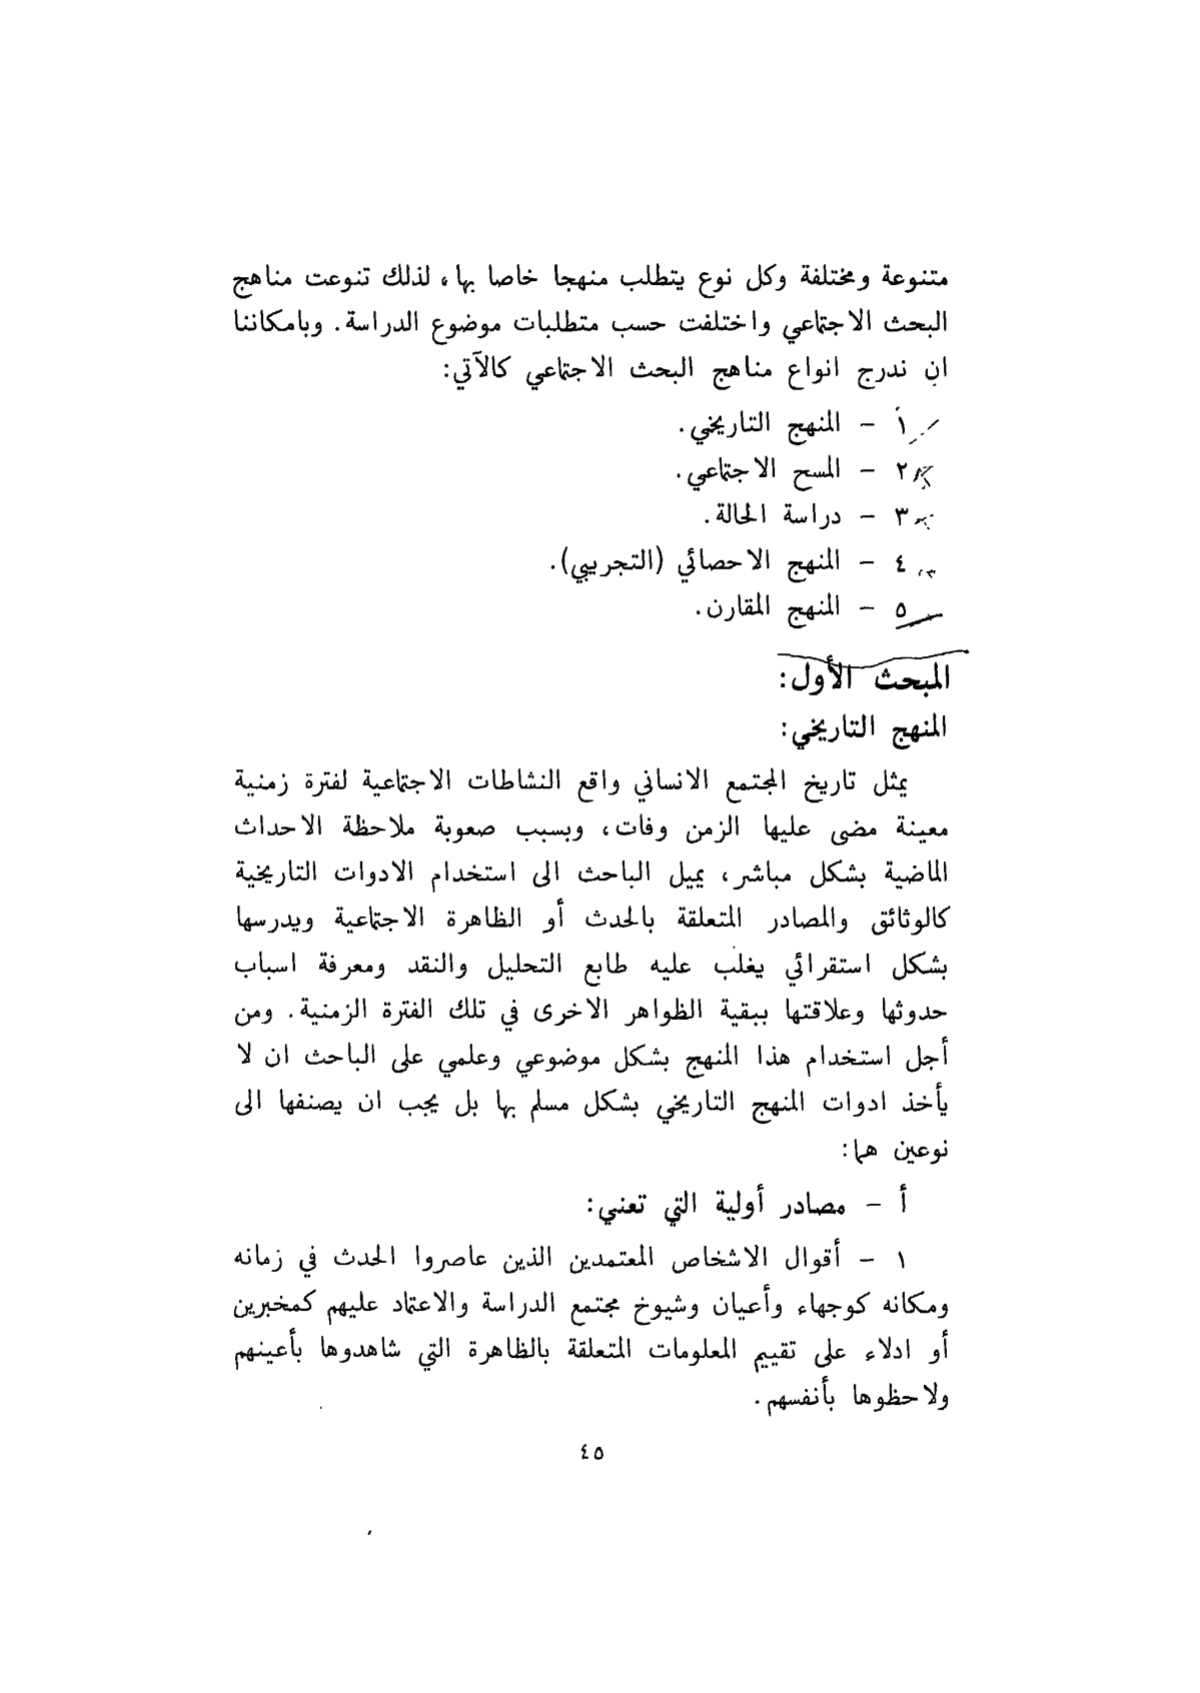 متنوعة ومختلفة وكل نوع يتطلب منهجا خاصا بها، لذلك تنوعت مناهج
البحث الاجتماعي واختلفت حسب متطلبات موضوع الدراسة. وبامكاننا
ان ندرج انواع مناهج البحث الاجتماعي كالآتي:
١ - المنهج التاريخي.
٢ - المسح الاجتماعي.
٣ - دراسة الحالة.
٤ - المنهج الاحصائي (التجريبي).
٥ - المنهج المقارن.
المبحث الأول:
المنهج التاريخي:
يمثل تاريخ المجتمع الانساني واقع النشاطات الاجتماعية لفترة زمنية
معينة مضى عليها الزمن وفات، وبسبب صعوبة ملاحظة الاحداث
الماضية بشكل مباشر، يميل الباحث الى استخدام الادوات التاريخية
كالوثائق والمصادر المتعلقة بالحدث أو الظاهرة الاجتماعية ويدرسها
بشكل استقرائي يغلب عليه طابع التحليل والنقد ومعرفة اسباب
حدوثها وعلاقتها ببقية الظواهر الاخرى في تلك الفترة الزمنية. ومن
أجل استخدام هذا المنهج بشكل موضوعي وعلمي على الباحث ان لا
يأخذ ادوات المنهج التاريخي بشكل مسلم بها بل يجب ان يصنفها الى
نوعين هما:
أ - مصادر أولية التي تعني:
١ - أقوال الاشخاص المعتمدين الذين عاصروا الحدث في زمانه
ومكانه كوجهاء وأعيان وشيوخ مجتمع الدراسة والاعتماد عليهم كمخبرين
أو ادلاء على تقييم المعلومات المتعلقة بالظاهرة التي شاهدوها بأعينهم
ولاحظوها بأنفسهم.
٤٥